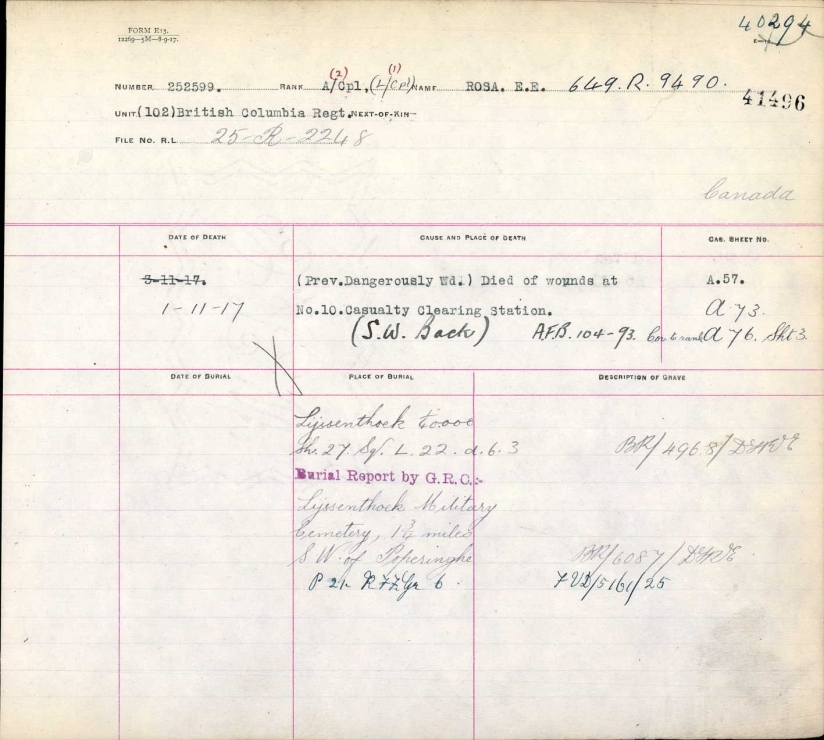 FORM E13.
12269—5M—8-9-17.
40294
NUMBER 252599. RANK A/Cpl. (2) (L/Cpl) (1) NAME ROSA. E.E. 649.R.9490.
41496
UNIT (102) British Columbia Regt. NEXT-OF-KIN
FILE NO. R.L. 25-R-2248
Canada
DATE OF DEATH CAUSE AND PLACE OF DEATH CAS. SHEET NO.
3-11-17. (Prev.Dangerously Wd.) Died of wounds at A.57.
1-11-17 No.10.Casualty Clearing Station. A 73.
(S.W. Back) A.F.B. 104-93. Cor. to rank A 76. Sht 3.
DATE OF BURIAL PLACE OF BURIAL DESCRIPTION OF GRAVE
Lijssenthoek
Sh. 27. Sq. L. 22. d. 6. 3 BR/4968/DGR&E
Burial Report by G.R.C:-
Lijssenthoek Military
Cemetery, 1¾ miles
S.W. of Poperinghe BR/6087/DGR&E
P 21 Gr 6.